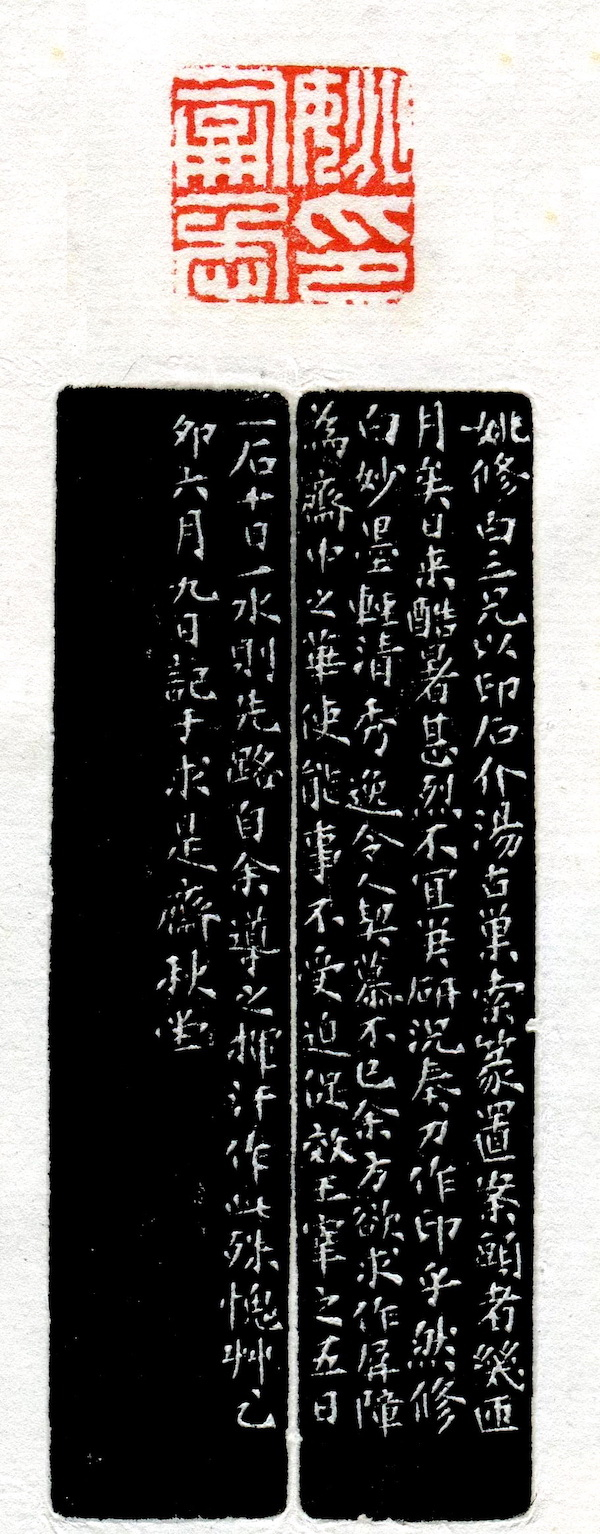 姚
印
姚修白三兄以印石介湯古巢索篆置案頭者幾匝
月矣日來酷暑甚烈不宜筆研況奏刀作印乎然修
白妙墨輕清秀逸令人契慕不已余方欲求作屏障
為齋中之華使能事不受迫促效王宰之五日
一石十日一水則先路自余導之揮汗作此殊愧艸乙
卯六月九日記于求是齋秋堂